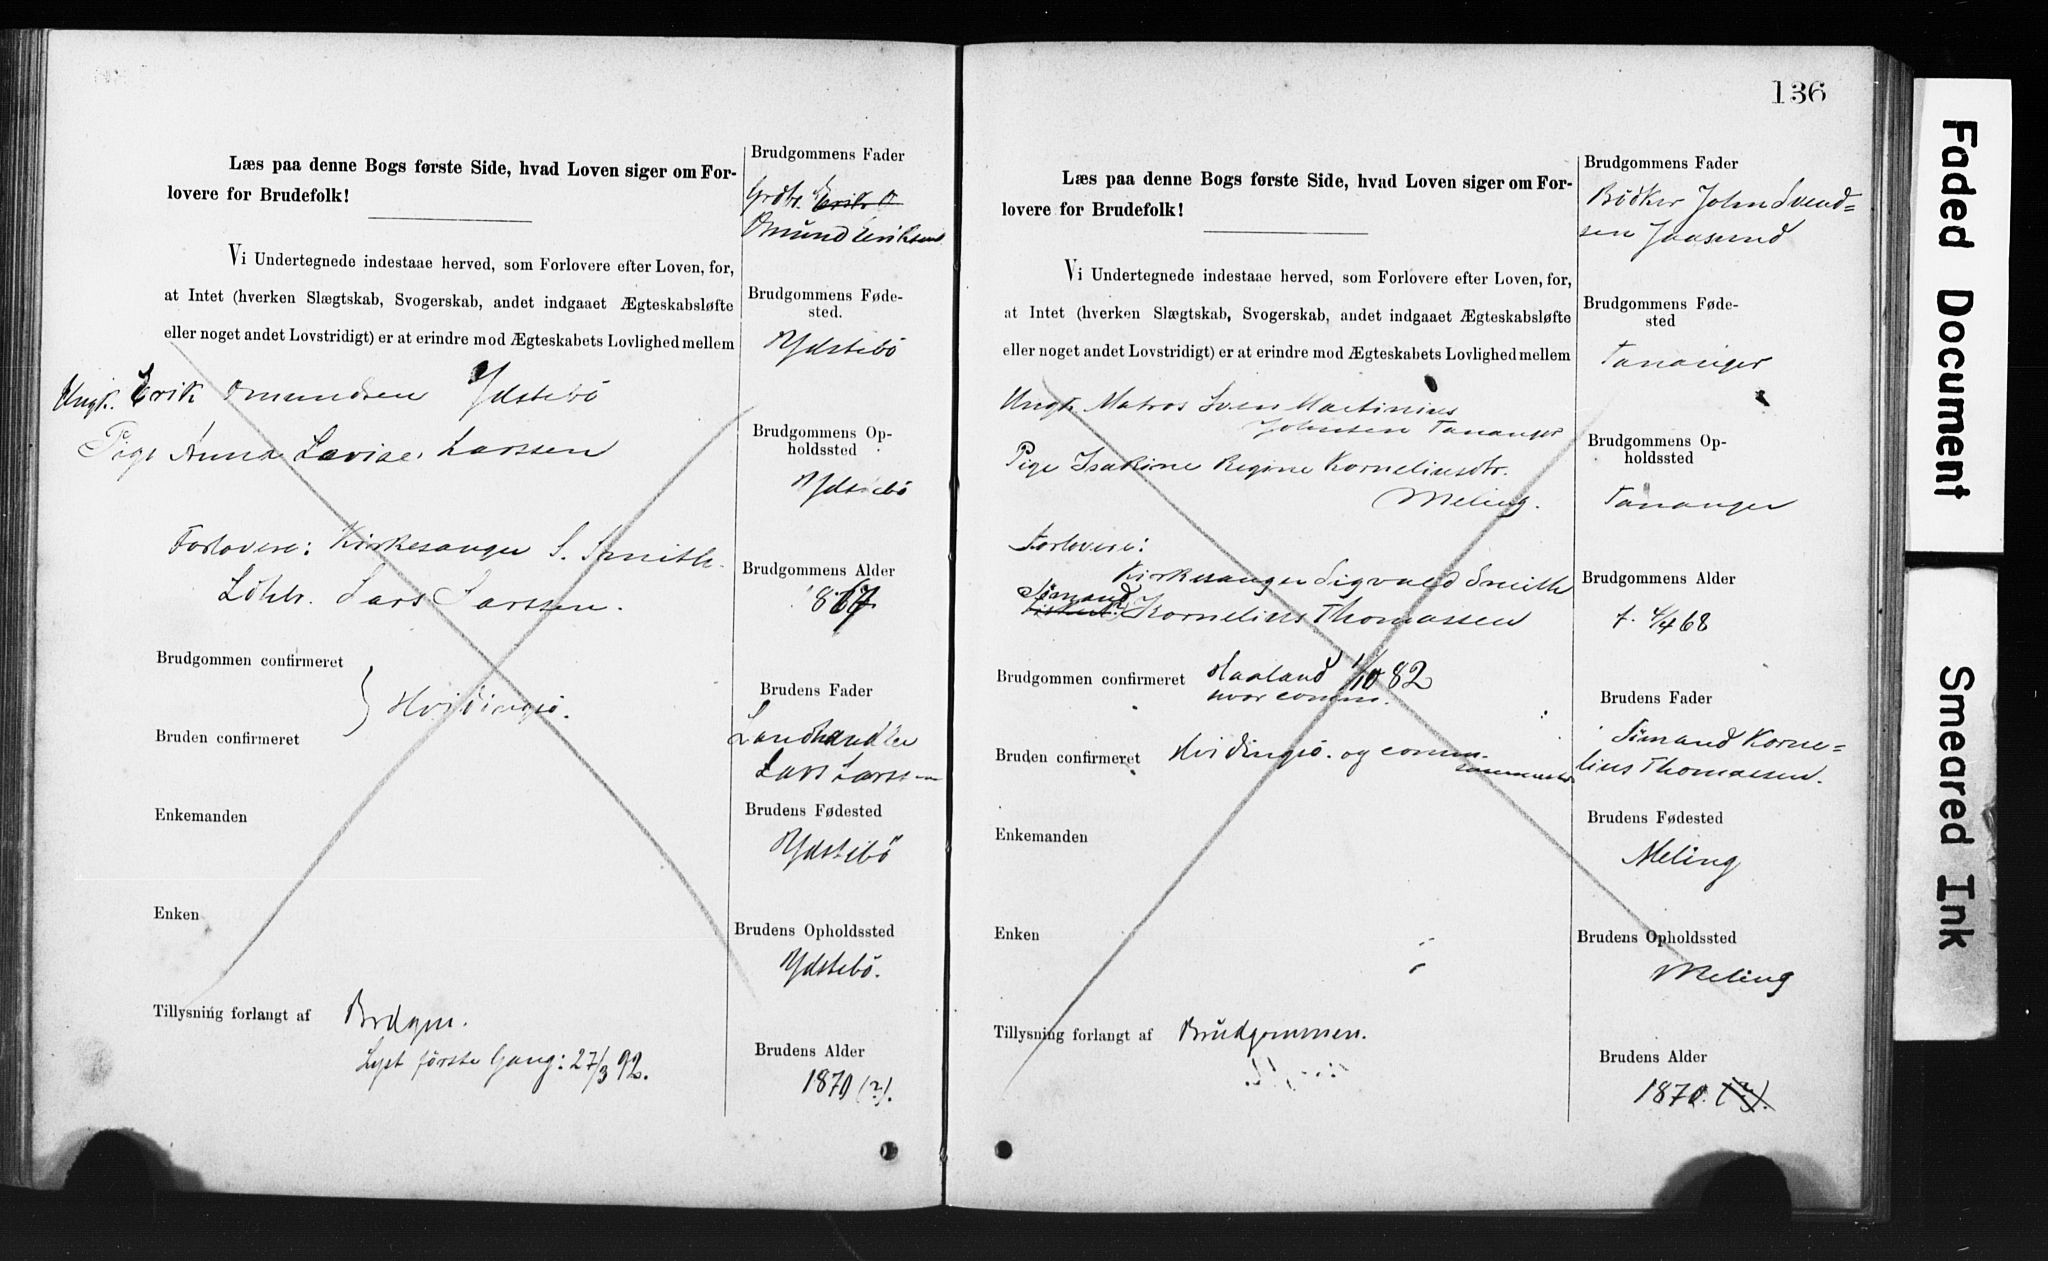 Læs paa denne Bogs første Side, hvad Loven siger om For-
lovere for Brudefolk!
Vi Undertegnede indestaae herved, som Forlovere efter Loven, for,
at Intet (hverken Slægtskab, Svogerskab, andet indgaaet Ægteskabsløfte
eller noget andet Lovstridigt) er at erindre mod Ægteskabets Lovlighed mellem
Ungk. Erik Omundsen Ydstebö
Pige Anna Lovise Larssen
Forlovere: Kirkesanger S. Smith.
Löhb. Lars Larssen.
Brudgommen confirmeret
Hvidingsö.
Bruden confirmeret
Enkemanden
Enken
Tillysning forlangt af Brdgm.
Lyst förste Gang: 27/3 92.
Brudgommens Fader
Grdbr. Erik O
Omund Eriksen
Brudgommens Føde-
sted.
Ydstebö
Brudgommens Op-
holdssted
Ydstebö
Brudgommens Alder
1867
Brudens Fader
Landhandler
Lars Larssen
Brudens Fødested
Ydstebö
Brudens Opholdssted
Ydstebö.
Brudens Alder
1870 (?).
136
Læs paa denne Bogs første Side, hvad Loven siger om For-
lovere for Brudefolk!
Vi Undertegnede indestaae herved, som Forlovere efter Loven, for,
at Intet (hverken Slægtskab, Svogerskab, andet indgaaet Ægteskabsløfte
eller noget andet Lovstridigt) er at erindre mod Ægteskabets Lovlighed mellem
Ungk. Matros Sven Martinius
Johnsen Tananger
Pige Isakine Regine Korneliusdtr.
Meling.
Forlovere:
Kirkesanger Sigvald Smith
Sömand
Kornelius Thomassen
Brudgommen confirmeret Haaland 1/10 82
hvor comm.
Bruden confirmeret Hvidingsö. og comm.
sammested
Enkemanden
Enken
Tillysning forlangt af Brudgommen.
Brudgommens Fader
Bödker John Svend=
sen Jaasund
Brudgommens Føde-
sted
Tananger
Brudgommens Op-
holdssted
Tananger
Brudgommens Alder
f. 4/4 68
Brudens Fader
Sömand Korne=
lius Thomassen.
Brudens Fødested
Meling
Brudens Opholdssted
Meling
Brudens Alder
1870. (?).
Faded Document
Smeared Ink